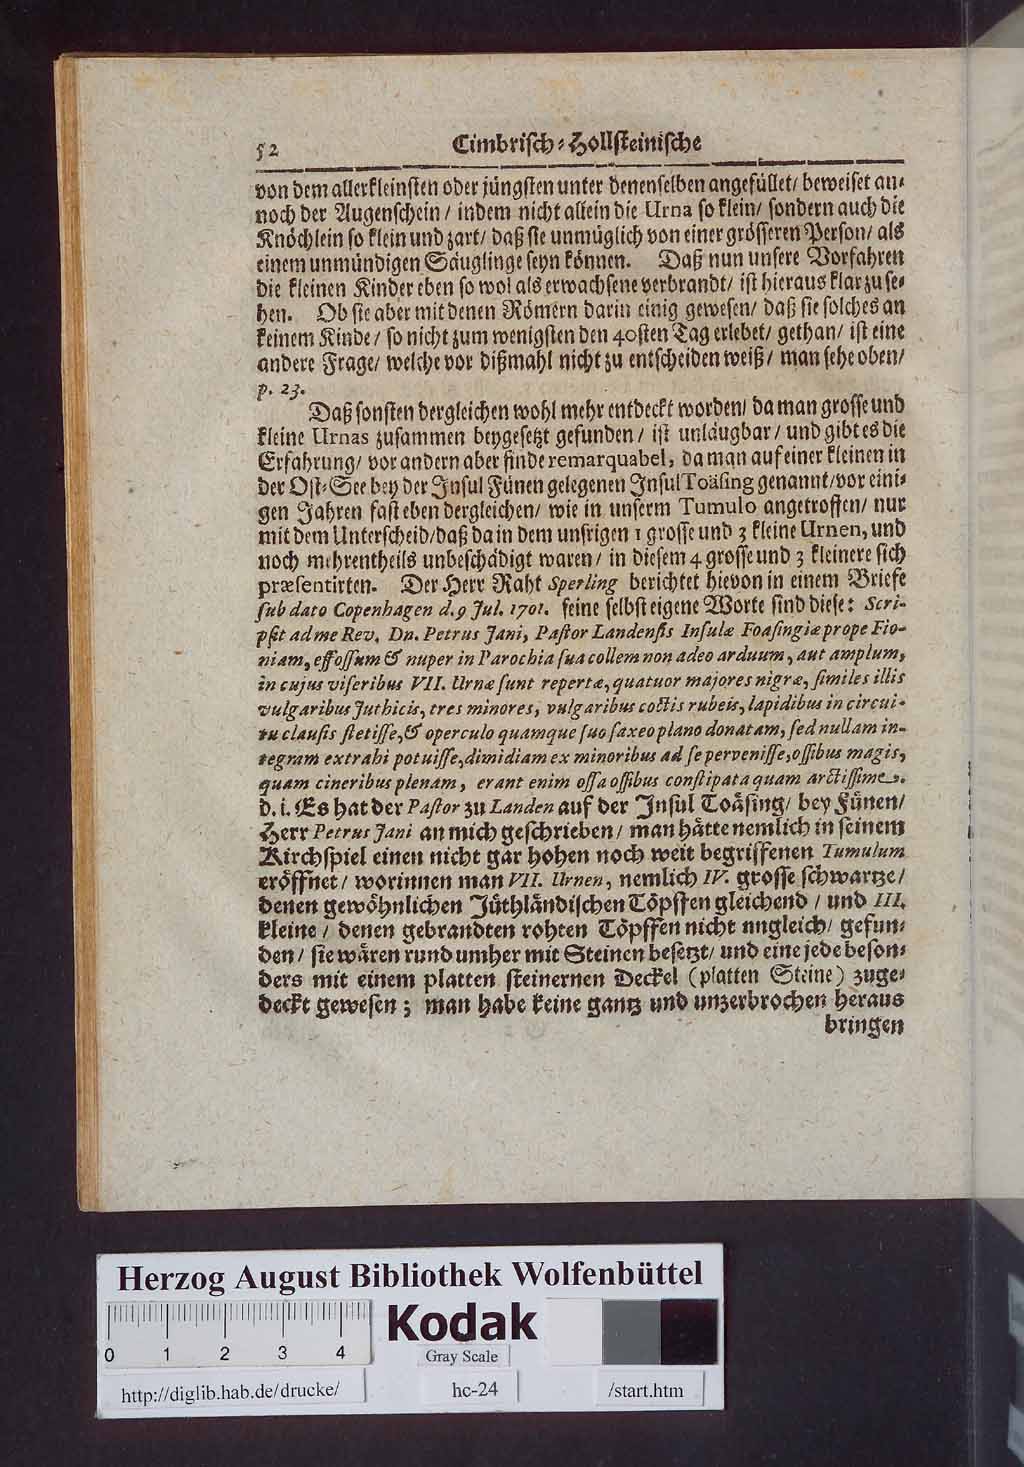 52 Cimbrisch-Hollsteinische
von dem allerkleinsten oder jüngsten unter denenselben angefüllet/ beweiset an-
noch der Augenschein/ indem nicht allein die Urna so klein/ sondern auch die
Knöchlein so klein und zart/ daß sie unmüglich von einer grösseren Person/ als
einem unmündigen Säuglinge seyn können. Daß nun unsere Vorfahren
die kleinen Kinder eben so wol als erwachsene verbrandt/ ist hieraus klar zu se-
hen. Ob sie aber mit denen Römern darin einig gewesen/ daß sie solches an
keinem Kinde/ so nicht zum wenigsten den 40sten Tag erlebet/ gethan/ ist eine
andere Frage/ welche vor dißmahl nicht zu entscheiden weiß/ man sehe oben/
p. 23.
Daß sonsten dergleichen wohl mehr entdeckt worden/ da man grosse und
kleine Urnas zusammen beygesetzt gefunden/ ist unläugbar/ und gibt es die
Erfahrung/ vor andern aber finde remarquabel, da man auf einer kleinen in
der Ost-See bey der Insul Fünen gelegenen Insul Toäsing genannt/ vor eini-
gen Jahren fast eben dergleichen/ wie in unserm Tumulo angetroffen/ nur
mit dem Unterscheid/ daß da in dem unsrigen 1 grosse und 3 kleine Urnen, und
noch mehrentheils unbeschädigt waren/ in diesem 4 grosse und 3 kleinere sich
præsentirten. Der Herr Raht Sperling berichtet hievon in einem Briefe
sub dato Copenhagen d. 9 Jul. 1701. seine selbst eigene Worte sind diese: Scri-
psit ad me Rev. Dn. Petrus Jani, Pastor Landensis Insulæ Foasingiæ prope Fio-
niam, effossum & nuper in Parochia sua collem non adeo arduum, aut amplum,
in cujus viseribus VII. Urnæ sunt repertæ, quatuor majores nigræ, similes illis
vulgaribus Juthicis, tres minores, vulgaribus coctis rubeis, lapidibus in circui-
tu clausis stetisse, & operculo quamque suo saxeo plano donatam, sed nullam in-
tegram extrahi potuisse, dimidiam ex minoribus ad se pervenisse, ossibus magis,
quam cineribus plenam, erant enim ossa ossibus constipata quam arctissime.
d. i. Es hat der Pastor zu Landen auf der Insul Toäsing/ bey Fünen/
Herr Petrus Jani an mich geschrieben/ man hätte nemlich in seinem
Kirchspiel einen nicht gar hohen noch weit begriffenen Tumulum
eröffnet/ worinnen man VII. Urnen, nemlich IV. grosse schwartze/
denen gewöhnlichen Jüthländischen Töpffen gleichend/ und III.
kleine/ denen gebrandten rohten Töpffen nicht ungleich/ gefun-
den/ sie wären rund umher mit Steinen besetzt/ und eine jede beson-
ders mit einem platten steinernen Deckel (platten Steine) zuge-
deckt gewesen; man habe keine gantz und unzerbrochen heraus
bringen
Herzog August Bibliothek Wolfenbüttel
Kodak
0 1 2 3 4
Gray Scale
http://diglib.hab.de/drucke/ hc-24 /start.htm